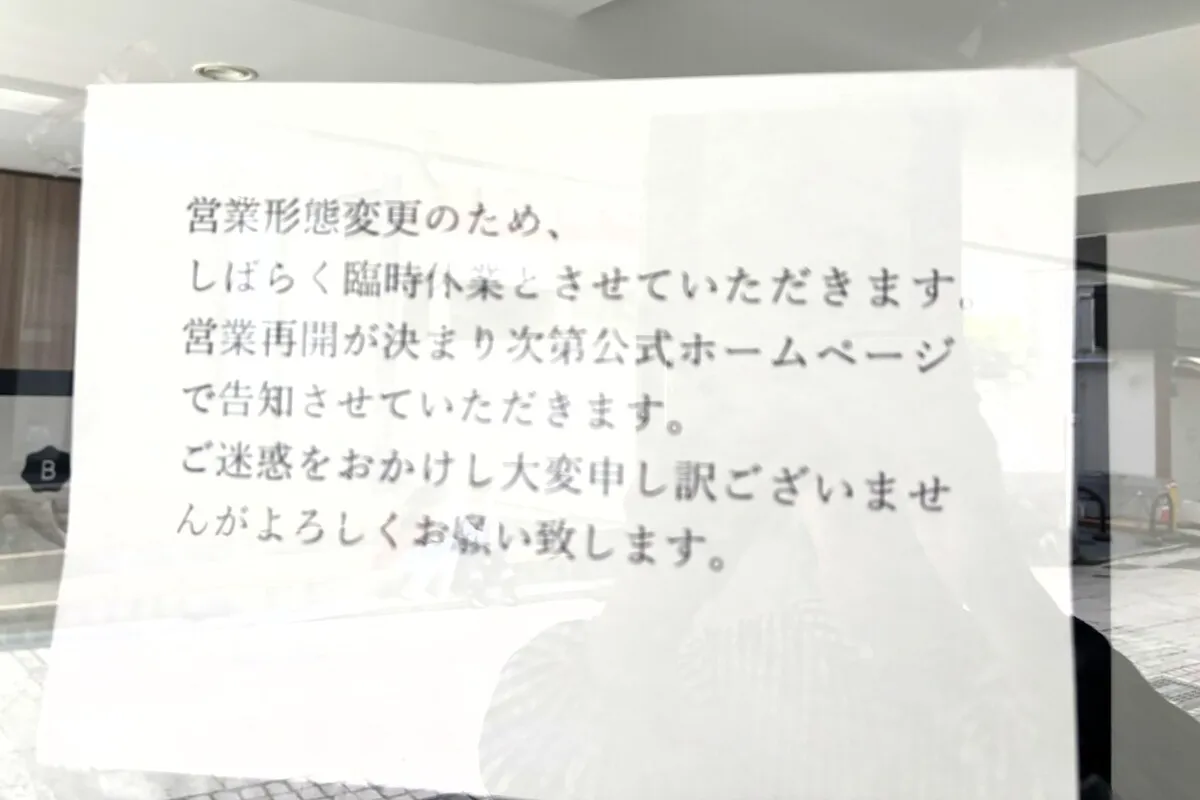 営業形態変更のため、
しばらく臨時休業とさせていただきます。
営業再開が決まり次第公式ホームページ
で告知させていただきます。
ご迷惑をおかけし大変申し訳ございませ
んがよろしくお願い致します。
B